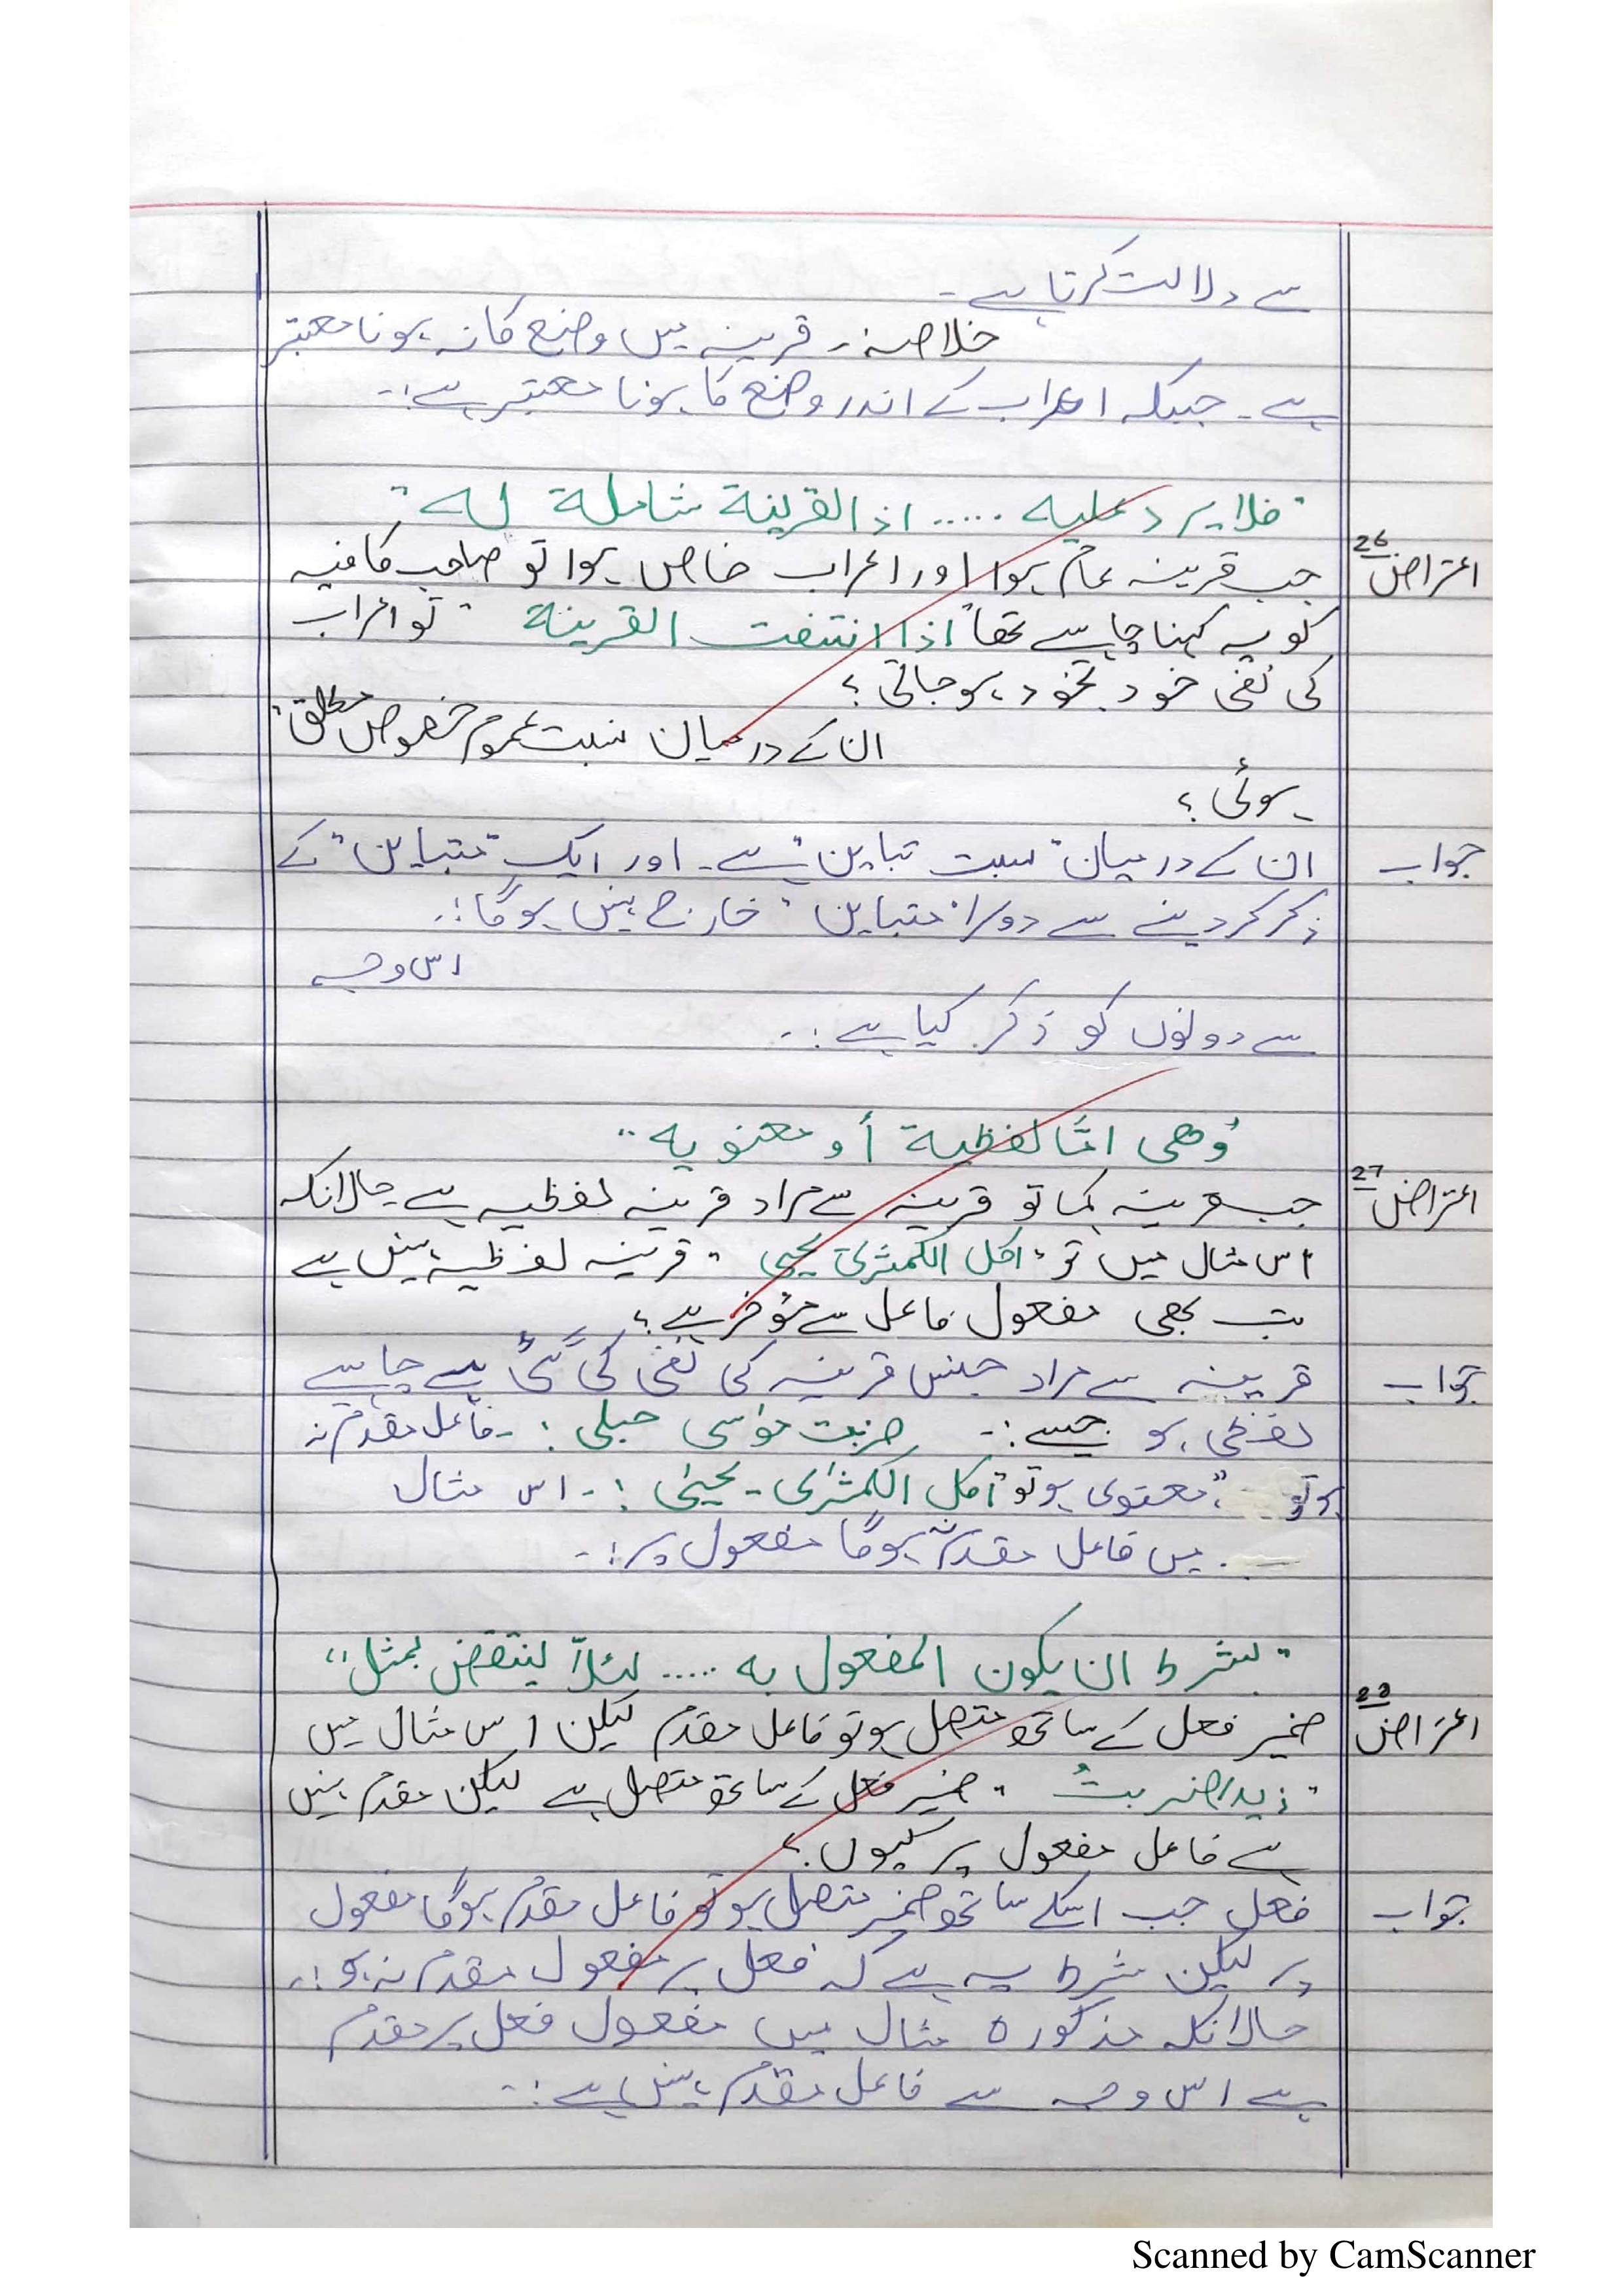 سے دلالت کرتا ہے -
خلاصہ:- قرینہ میں وضع کا نہ ہونا معتبر
ہے - جبکہ اعراب کے اندر وضع کا ہونا معتبر ہے :-
"فلا یرد علیہ ..... اذ القرینة شاملة لہ"
اعتراض 26 جب قرینہ عام ہوا اور اعراب خاص ہوا تو صاحب کافیہ
کو یہ کہنا چاہیے تھا "اذا انتفت القرینة" تو اعراب
کی نفی خود بخود ہو جاتی ؟
ان کے درمیان نسبت عموم خصوص مطلق
ہوئی ؟
جواب ان کے درمیان "نسبت تباین" ہے - اور ایک "متباین" کے
ذکر کر دینے سے دوسرا "متباین" خارج نہیں ہوگا :-
اس وجہ
سے دونوں کو ذکر کیا ہے :-
"وھی امّا لفظیة أو معنویہ"
اعتراض 27 جب قرینہ کہا تو قرینہ سے مراد قرینہ لفظیہ ہے حالانکہ
اس مثال میں تو "اکل الکمثریٰ یحیی" قرینہ لفظیہ نہیں ہے
تب بھی مفعول فاعل سے مؤخر ہے ؟
جواب قرینہ سے مراد جنس قرینہ کی نفی کی گئی ہے چاہیے
لفظی ہو جیسے :- ضربت موسٰی حبلی :- فاعل مقدم نہ
ہو تو "معنوی ہو تو" اکل الکمثرٰی - یحییٰ :- اس مثال
میں فاعل مقدم ہوگا مفعول پر :-
"بشرط ان یکون المفعول بہ ..... لئلاّ ینتقض بمثل"
اعتراض 28 ضمیر فعل کے ساتھ متصل ہو تو فاعل مقدم لیکن اس مثال میں
"زیدا ضربتُ" ضمیر فعل کے ساتھ متصل ہے لیکن مقدم نہیں
ہے فاعل مفعول پر کیوں ؟
جواب فعل جب اسکے ساتھ ضمیر متصل ہو تو فاعل مقدم ہوگا مفعول
پر لیکن شرط یہ ہے کہ فعل پر مفعول مقدم نہ ہو :-
حالانکہ مذکورہ مثال میں مفعول فعل پر مقدم
ہے اس وجہ سے فاعل مقدم نہیں ہے :-
Scanned by CamScanner